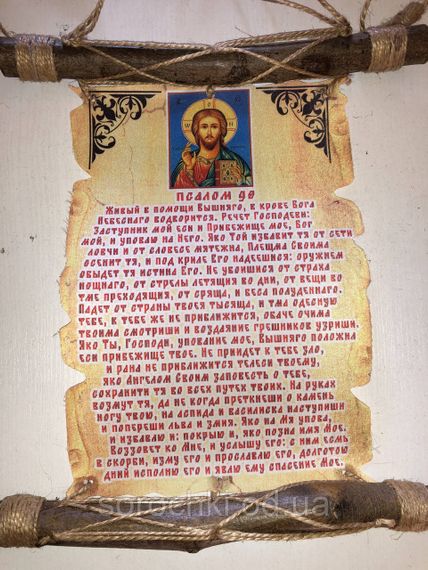 ПСАЛОМ 90
Живый в помощи Вышняго, в крове Бога
Небеснаго водворится. Речет Господеви:
Заступник мой еси и Прибежище мое, Бог
мой, и уповаю на Него. Яко Той избавит тя от сети
ловчи и от словесе мятежна, Плещма Своима
осенит тя, и под криле Его надеешися: оружием
обыдет тя истина Его. Не убоишися от страха
нощнаго, от стрелы летящия во дни, от вещи во
тме преходящия, от сряща, и беса полуденнаго.
Падет от страны твоея тысяща, и тма одесную
тебе, к тебе же не приближится, обаче очима
твоима смотриши и воздаяние грешников узриши.
Яко Ты, Господи, упование мое, Вышняго положил
еси прибежище твое. Не приидет к тебе зло,
и рана не приближится телеси твоему,
яко Ангелом Своим заповесть о тебе,
сохранити тя во всех путех твоих. На руках
возмут тя, да не когда преткнеши о камень
ногу твою, на аспида и василиска наступиши
и попереши льва и змия. Яко на Мя упова,
и избавлю и: покрыю и, яко позна имя Мое.
Воззовет ко Мне, и услышу его: с ним есмь
в скорби, изму его и прославлю его, долготою
дний исполню его и явлю ему спасение Мое.
sorochki-od.ua